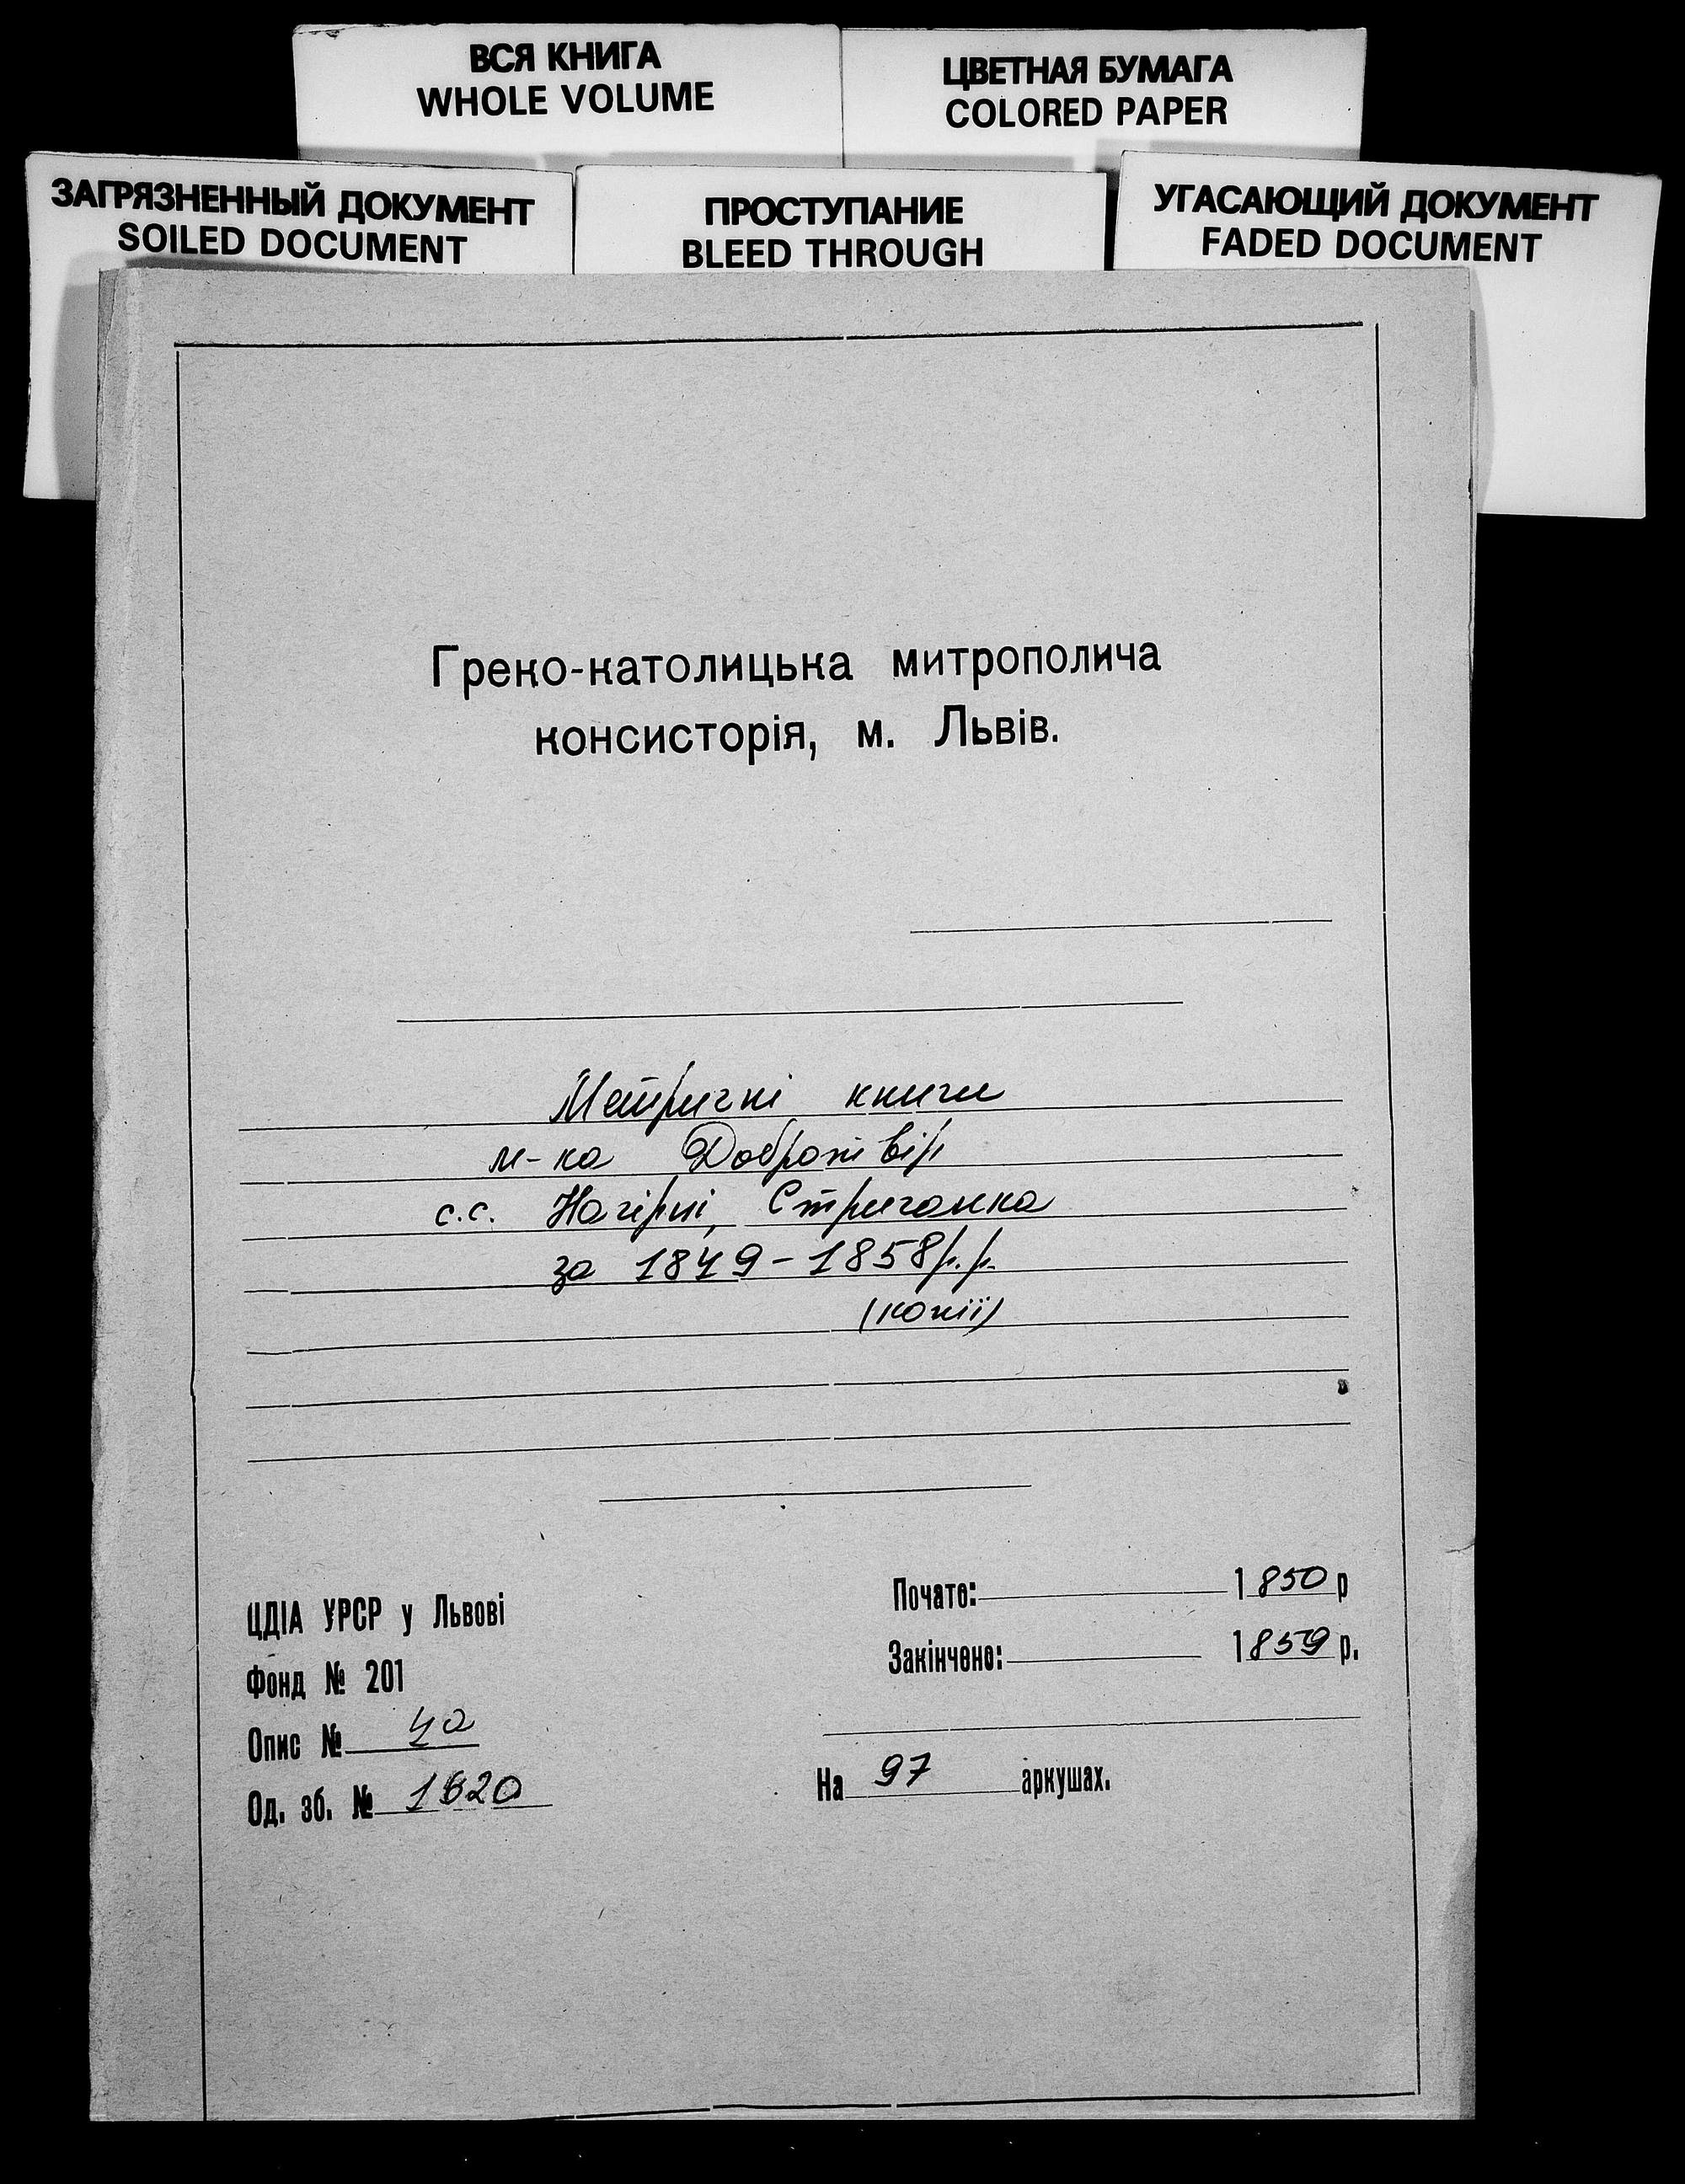 ВСЯ КНИГА
WHOLE VOLUME
ЦВЕТНАЯ БУМАГА
COLORED PAPER
ЗАГРЯЗНЕННЫЙ ДОКУМЕНТ
SOILED DOCUMENT
ПРОСТУПАНИЕ
BLEED THROUGH
УГАСАЮЩИЙ ДОКУМЕНТ
FADED DOCUMENT
Греко-католицька митрополича
консисторія, м. Львів.
Метричні книги
м-ко Добротвір
с.с. Нагірці, Стриганка
за 1849-1858р.р.
(копії)
ЦДІА УРСР у Львові
Фонд № 201
Опис № 4а
Од. зб. № 1820
Почато: 1850 р
Закінчено: 1859 р.
На 97 аркушах.